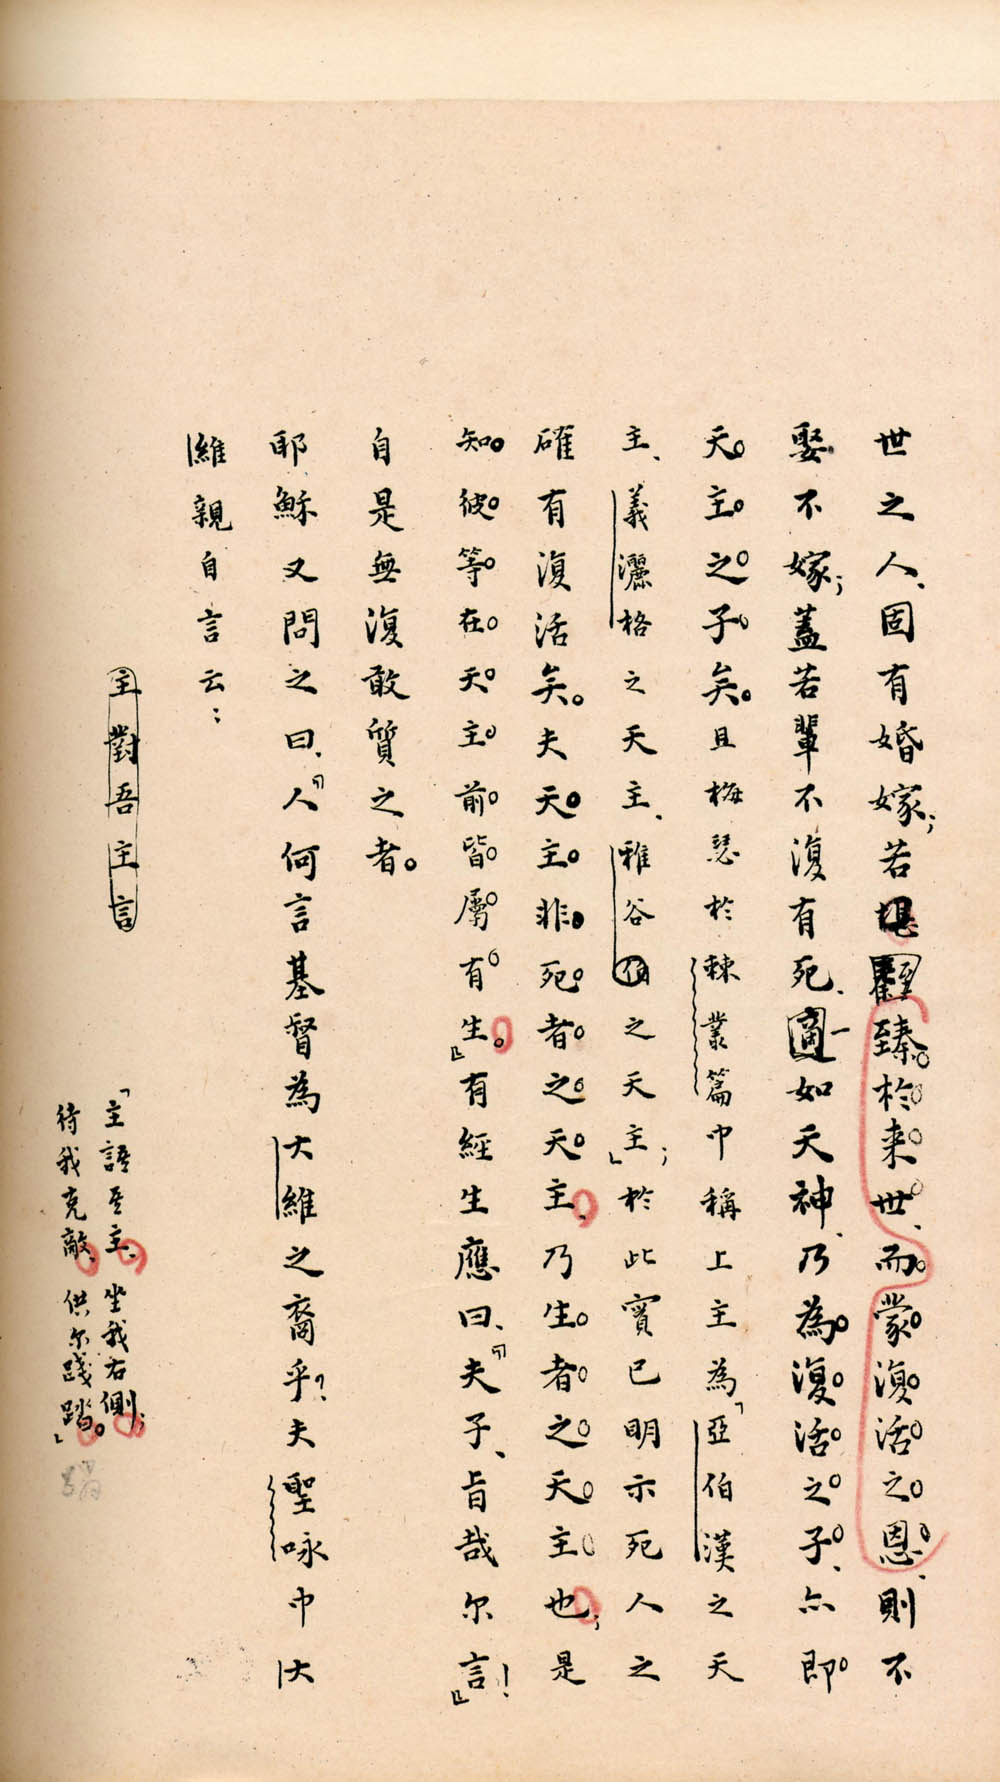 世之人、固有婚嫁；若臻於来世、而蒙復活之恩、則不
娶不嫁；蓋若輩不復有死、一如天神、乃為復活之子、亦即
天主之子矣。且梅瑟於棘叢篇中稱上主為「亞伯漢之天
主、義灑格之天主、雅谷伯之天主」；於此實已明示死人之
確有復活矣。夫天主非死者之天主、乃生者之天主也；是
知彼等在天主前皆屬有生。』有經生應曰、『夫子、旨哉尔言！』
自是無復敢質之者。
耶穌又問之曰、『人何言基督為大維之裔乎？夫聖咏中大
維親自言云：
主對吾主言
「主語吾主、坐我右側；
待我克敵、供尔踐踏。」